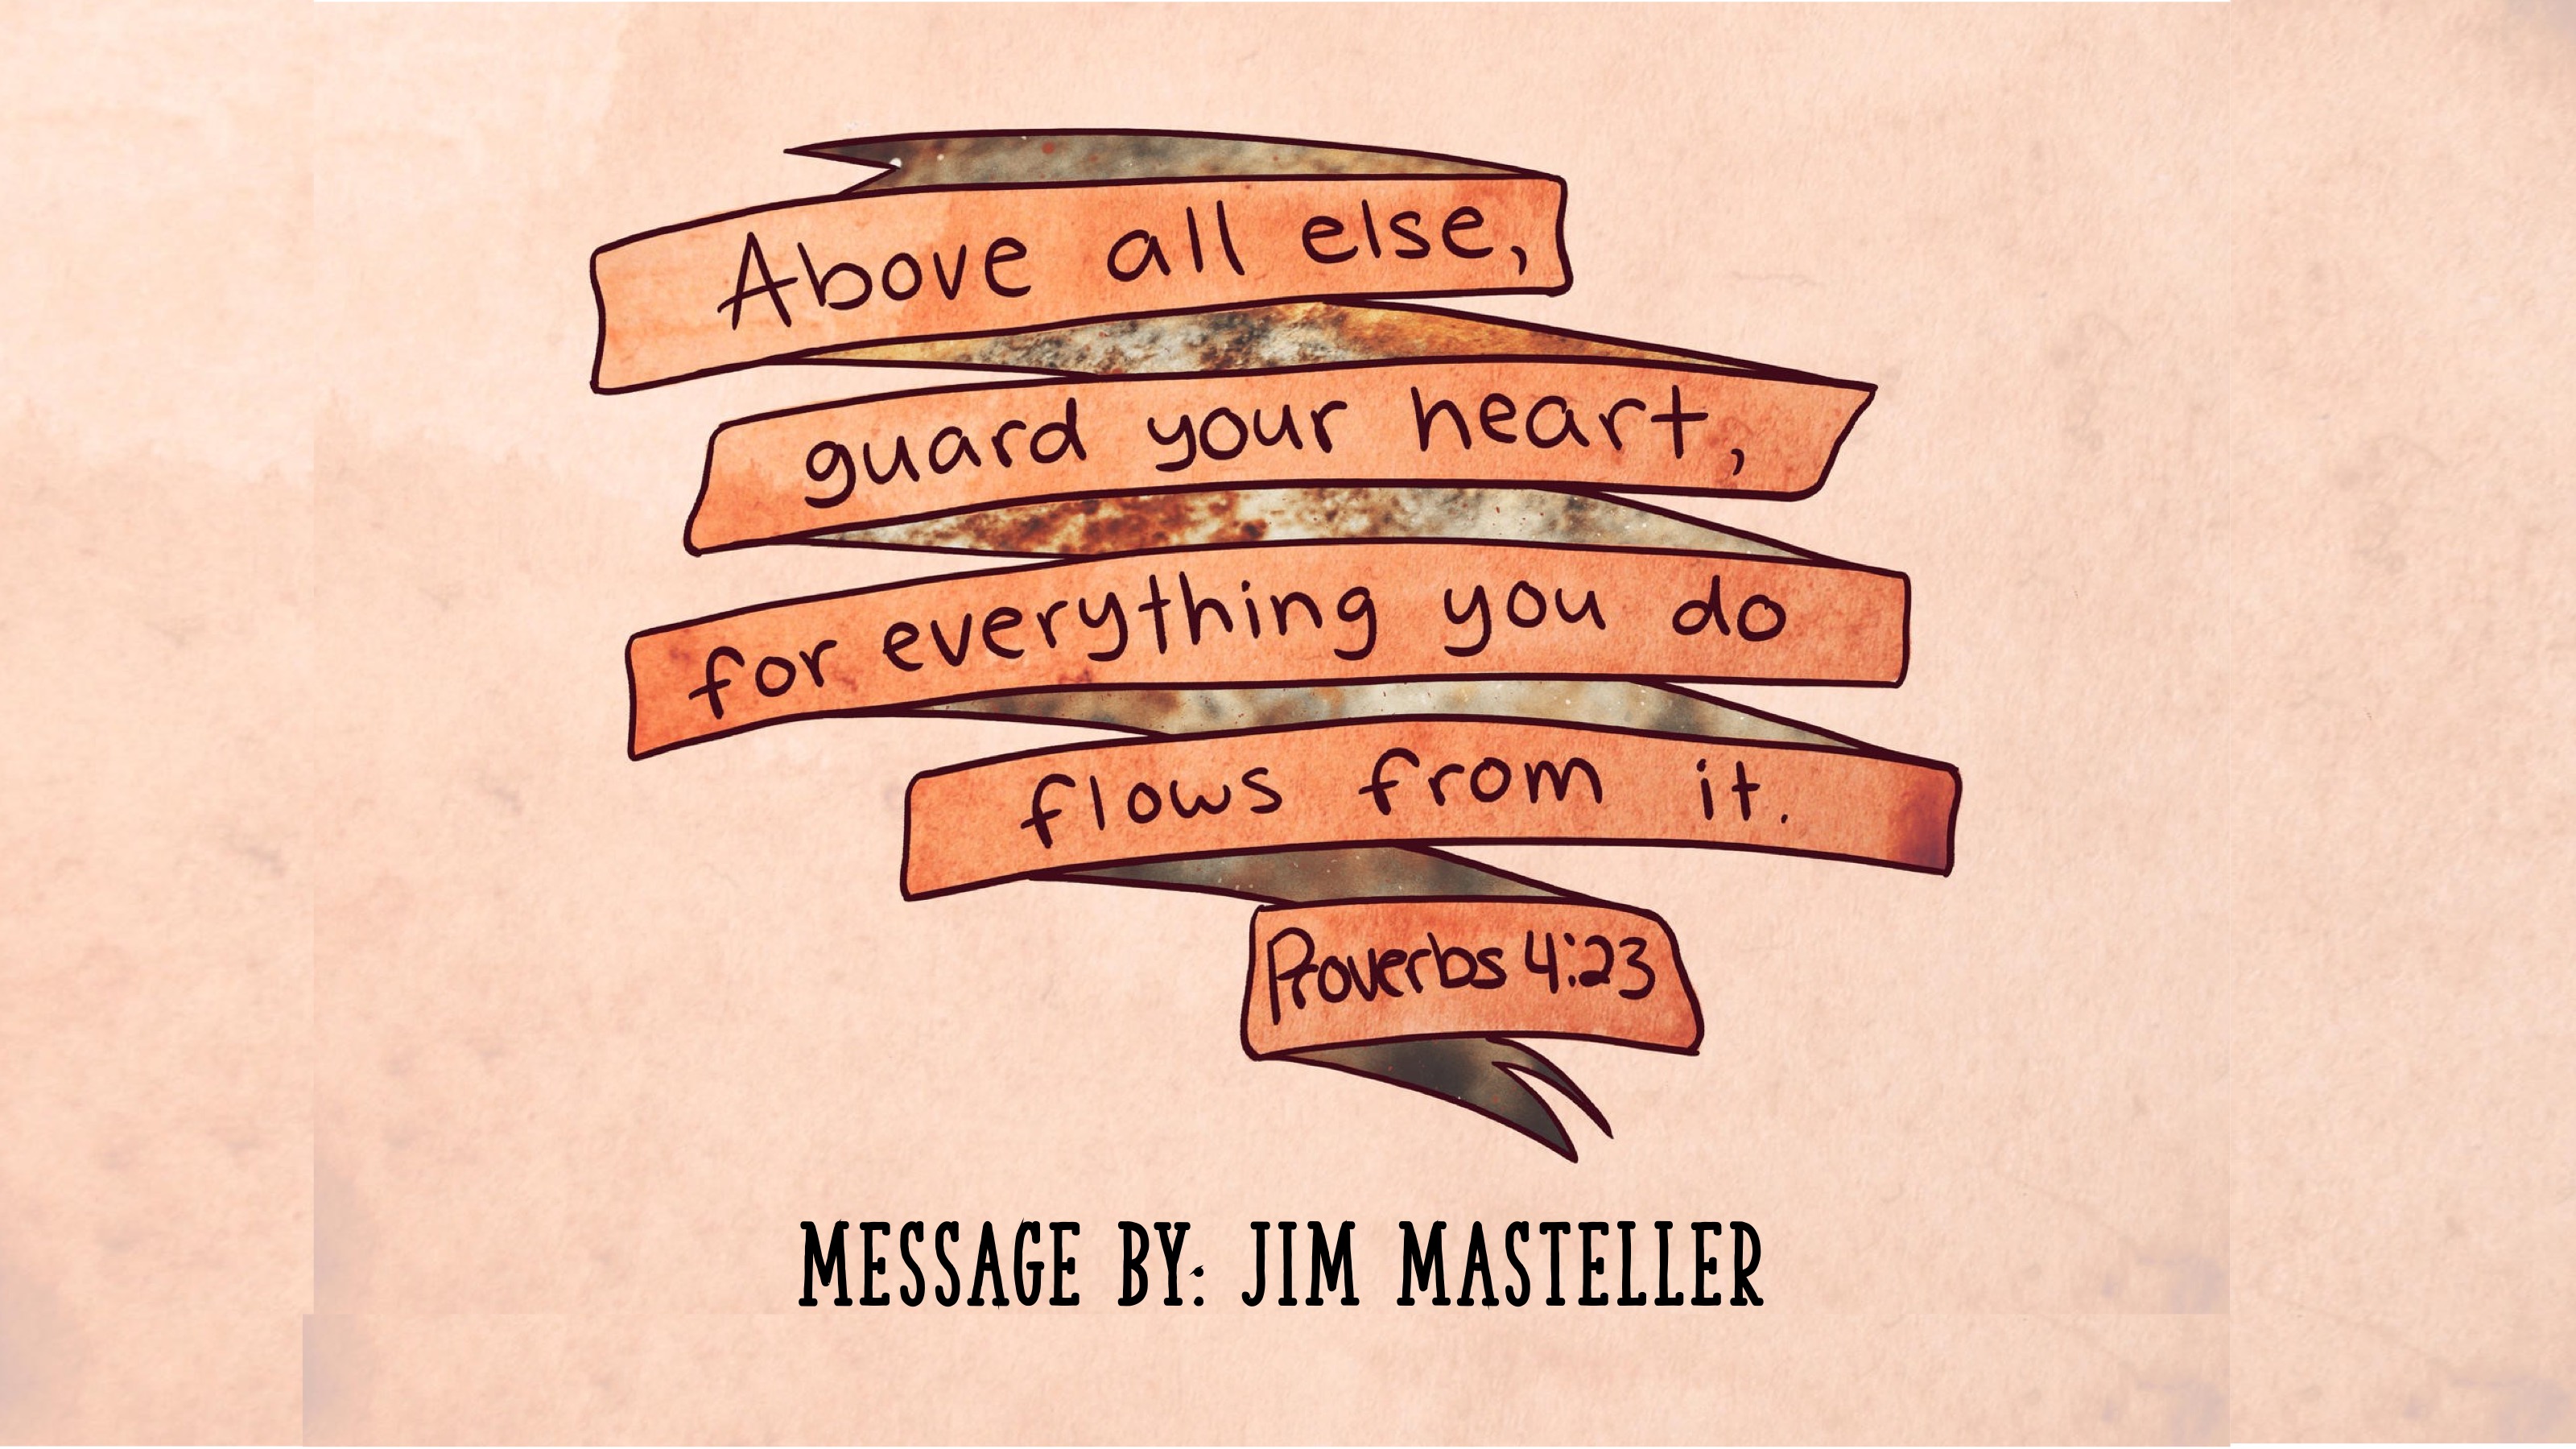 Above all else,
guard your heart,
for everything you do
flows from it.
Proverbs 4:23
MESSAGE BY: JIM MASTELLER